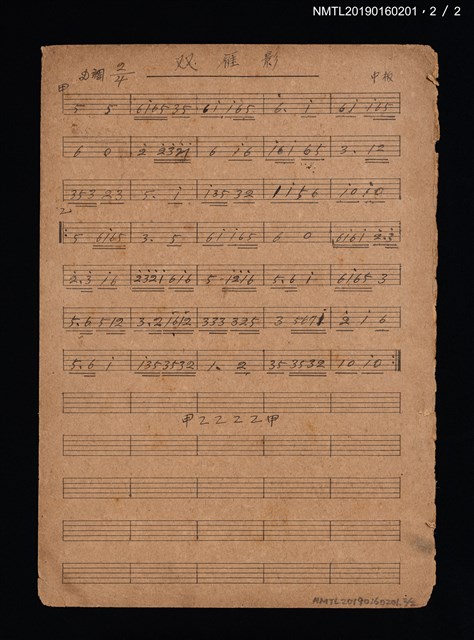 NMTL20190160201，2 / 2
双雁影
D調 2/4
中板
甲
5 5 | 6i65 35 | 6i i65 | 6. i | 6i i65
6 0 | 2 2321 | 6 i6 | i6i 65 | 3. 12
353 23 | 5. 1 | 135 32 | 1 i 5 6 | 10 i0
乙
5 6i65 | 3. 5 | 6i i65 | 6 0 | 6i6i 2.3
2.3 i6 | 232i 6i6 | 5 · i2i6 | 5.6 i | 6i65 3
5.6 512 | 3.2 i6i2 | 333 325 | 3 5671 | 2 i 6
5.6 i | i35 3532 | 1. 2 | 35 3532 | 10 i0
甲乙乙乙乙甲
NMTL20190160201 2/2